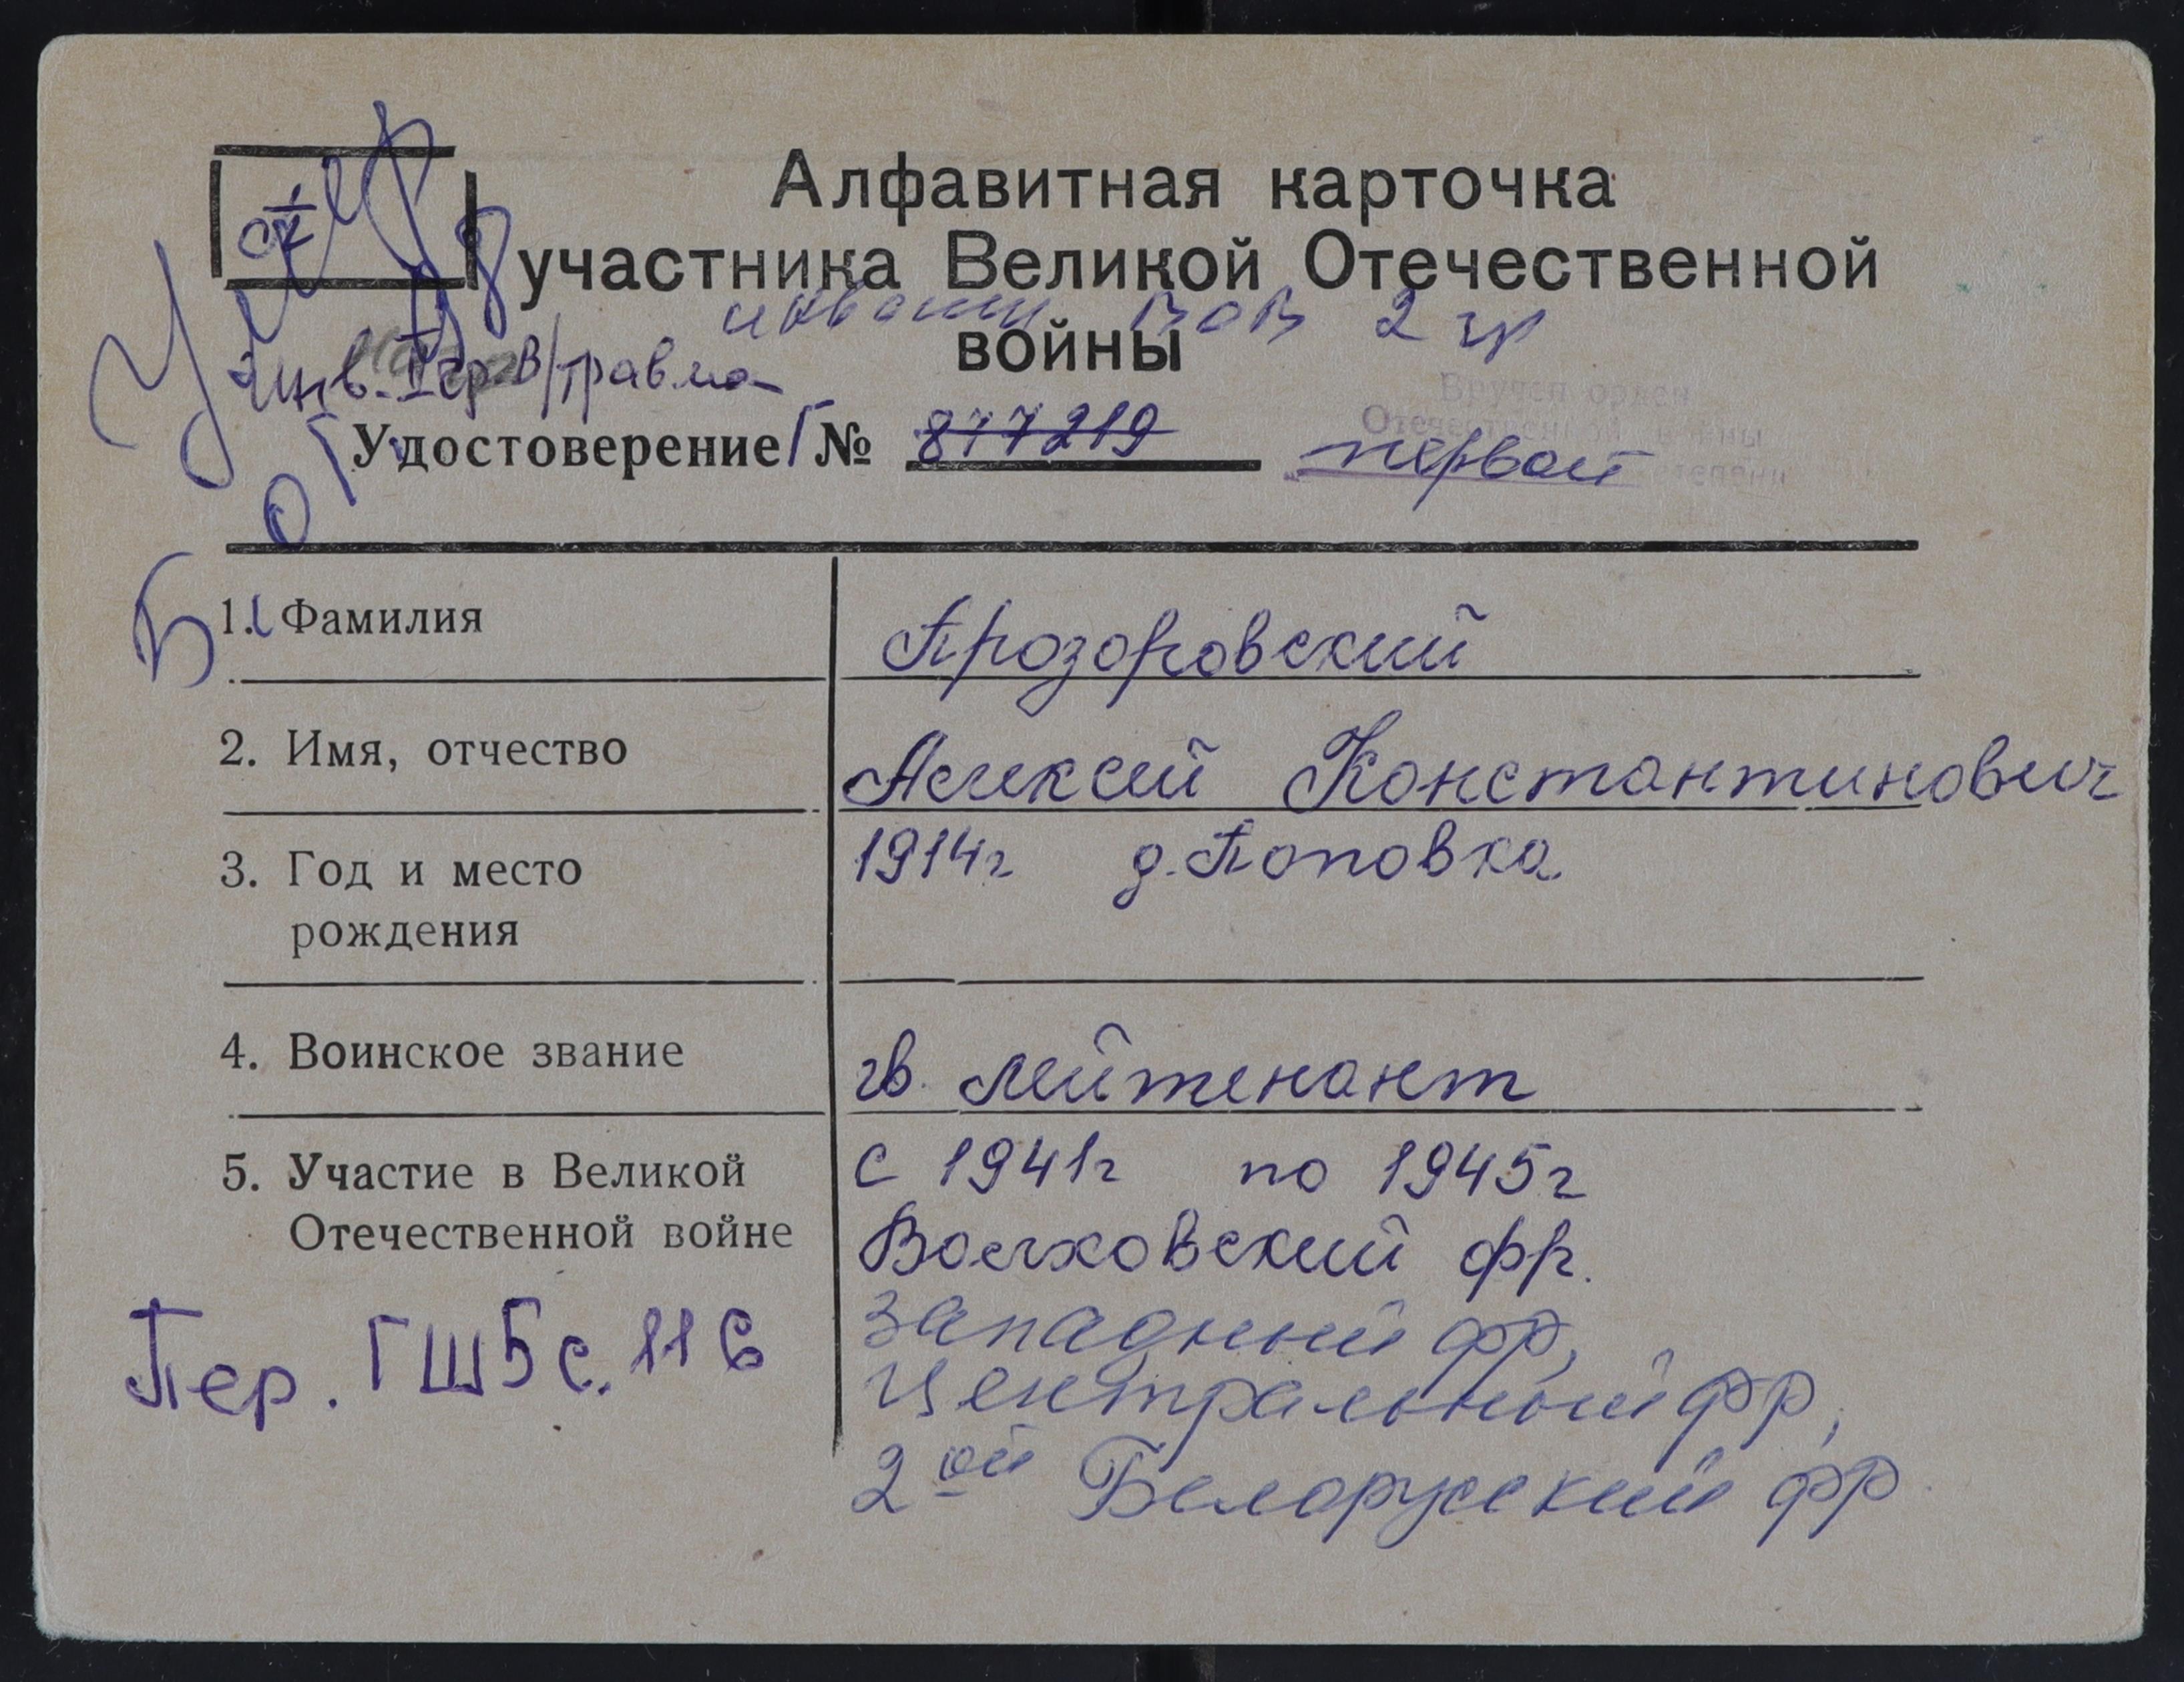 Алфавитная карточка
участника Великой Отечественной
инвалид ВОВ 2 гр
войны
Инв. II гр. В/травма
Вручен орден
Отечественной войны
Удостоверение №  877219  первой степени
1. Фамилия  Прозоровский
2. Имя, отчество  Алексей Константинович
3. Год и место  1914г д. Поповка
рождения
4. Воинское звание  гв. лейтенант
5. Участие в Великой  с 1941г по 1945г
Отечественной войне  Волховский фр.
Западный фр,
Пер. ГШ5с. 116  Центральный фр,
2ой Белорусский фр